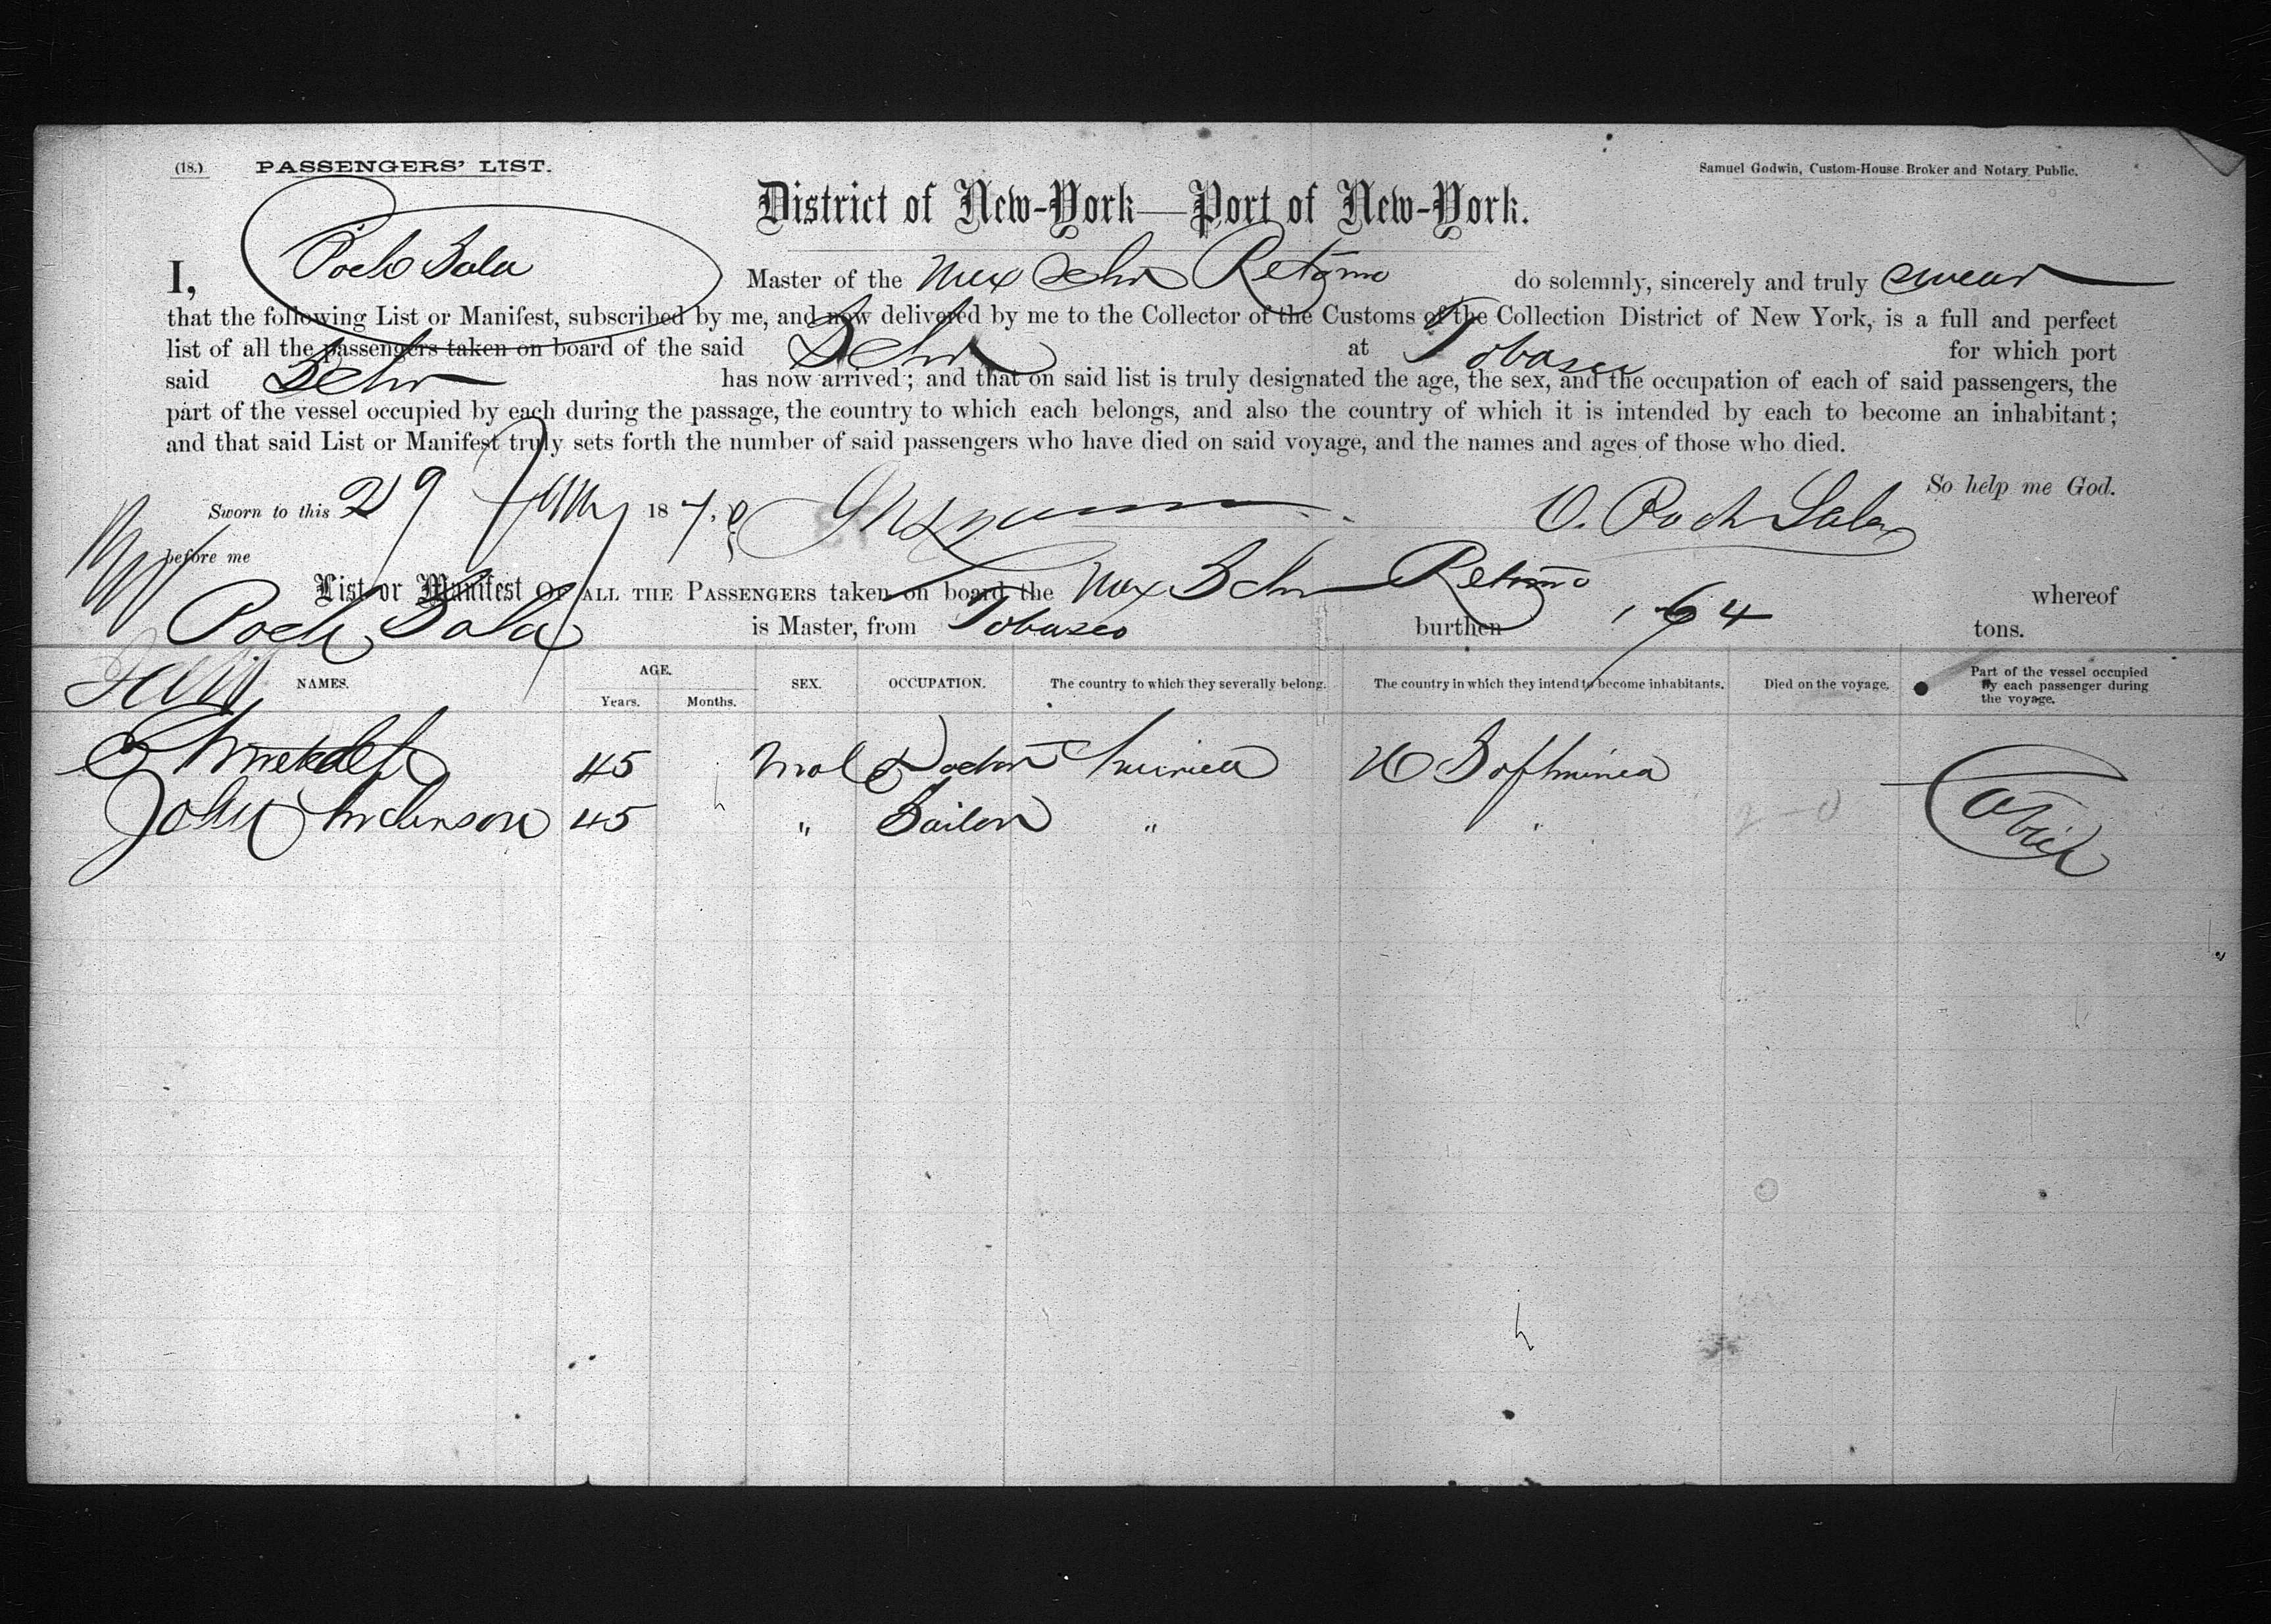 (18.) PASSENGERS' LIST.
Samuel Godwin, Custom-House Broker and Notary Public.
District of New-York—Port of New-York.
I, Poch Sala Master of the Mex Schr Retorno do solemnly, sincerely and truly swear
that the following List or Manifest, subscribed by me, and now delivered by me to the Collector of the Customs of the Collection District of New York, is a full and perfect
list of all the passengers taken on board of the said Schr at Tobasco for which port
said Schr has now arrived; and that on said list is truly designated the age, the sex, and the occupation of each of said passengers, the
part of the vessel occupied by each during the passage, the country to which each belongs, and also the country of which it is intended by each to become an inhabitant;
and that said List or Manifest truly sets forth the number of said passengers who have died on said voyage, and the names and ages of those who died.
So help me God.
Sworn to this 29 187 O. Poch Sala
before me
List or Manifest OF ALL THE PASSENGERS taken on board the Mex Schr Retorno whereof
Poch Sala is Master, from Tobasco burthen 164 tons.
NAMES. AGE. Years. Months. SEX. OCCUPATION. The country to which they severally belong. The country in which they intend to become inhabitants. Died on the voyage. Part of the vessel occupied by each passenger during the voyage.
45 Male Doctor America U S of America Cabin
John Anderson 45 " Sailor " "